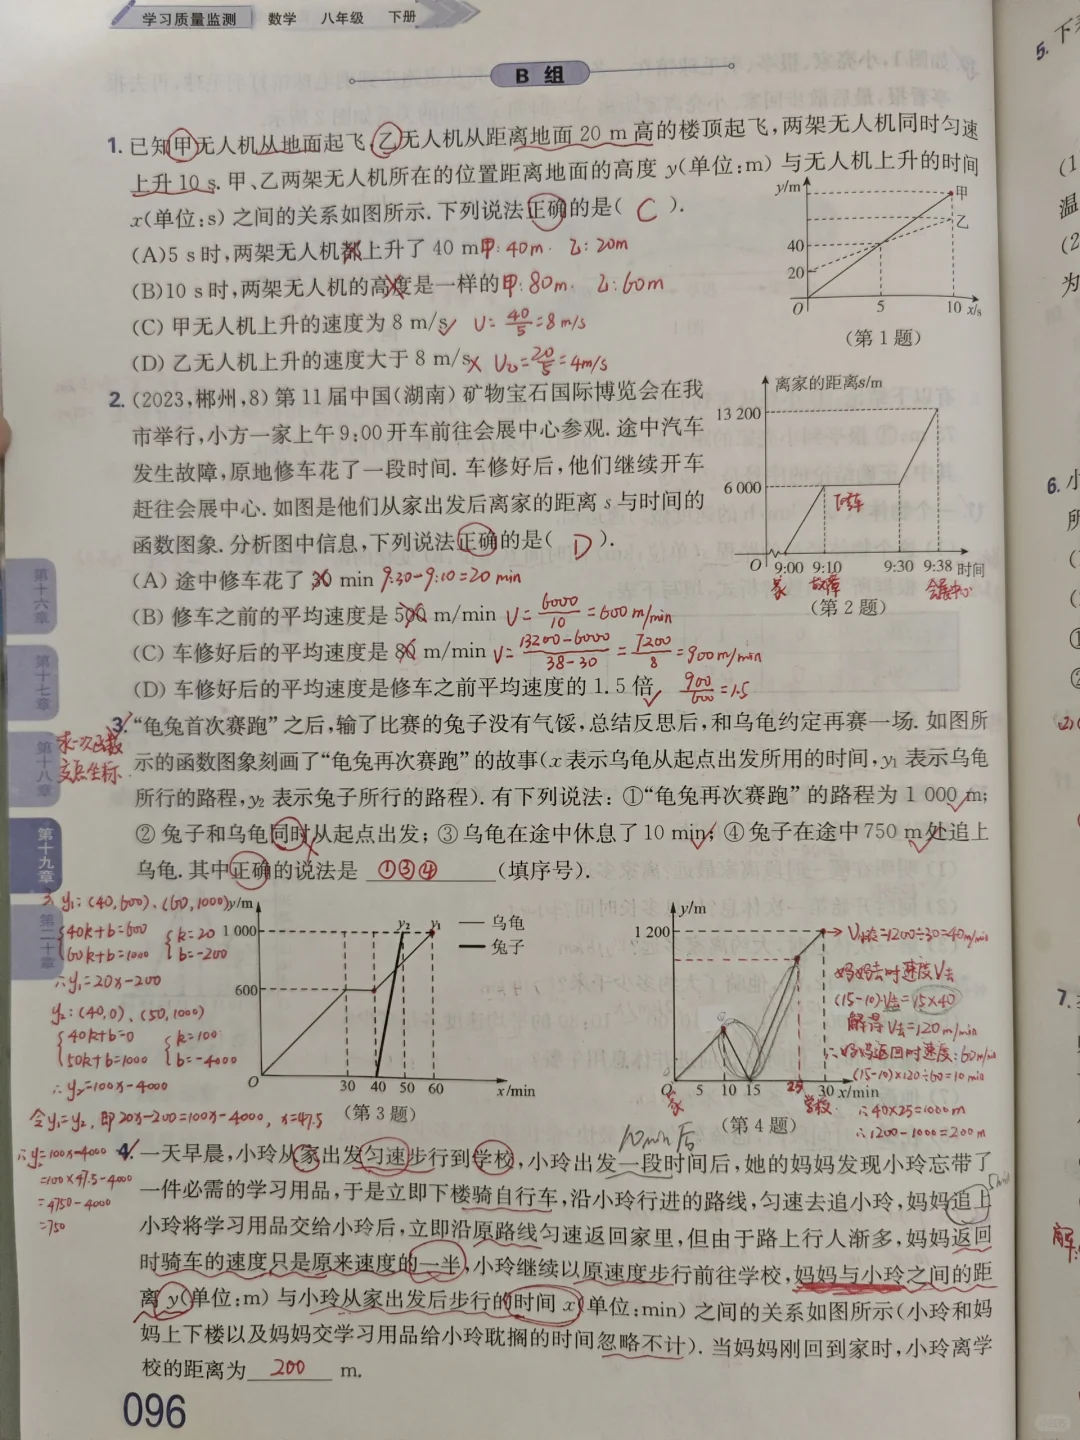 学习质量监测 数学 八年级 下册
B 组
1. 已知甲无人机从地面起飞,乙无人机从距离地面 20 m 高的楼顶起飞,两架无人机同时匀速
上升 10 s. 甲、乙两架无人机所在的位置距离地面的高度 y(单位:m) 与无人机上升的时间
x(单位:s) 之间的关系如图所示. 下列说法正确的是( C ).
(A)5 s 时,两架无人机都上升了 40 m 甲:40m. 乙:20m
(B)10 s 时,两架无人机的高度是一样的 甲:80m. 乙:60m
(C) 甲无人机上升的速度为 8 m/s V=40/5=8m/s
(D) 乙无人机上升的速度大于 8 m/s V乙=20/5=4m/s
y/m
甲
乙
40
20
O 5 10 x/s
(第 1 题)
2. (2023,郴州,8) 第 11 届中国(湖南) 矿物宝石国际博览会在我
市举行,小方一家上午 9:00 开车前往会展中心参观. 途中汽车
发生故障,原地修车花了一段时间. 车修好后,他们继续开车
赶往会展中心. 如图是他们从家出发后离家的距离 s 与时间的
函数图象. 分析图中信息,下列说法正确的是( D ).
(A) 途中修车花了 30 min 9:30-9:10=20 min
(B) 修车之前的平均速度是 500 m/min V=6000/10=600m/min
(C) 车修好后的平均速度是 80 m/min V=13200-6000/38-30=7200/8=900m/min
(D) 车修好后的平均速度是修车之前平均速度的 1.5 倍 900/600=1.5
离家的距离s/m
13 200
6 000
修车
O 9:00 9:10 9:30 9:38 时间
家 故障 会展中心
(第 2 题)
3. “龟兔首次赛跑”之后,输了比赛的兔子没有气馁,总结反思后,和乌龟约定再赛一场. 如图所
示的函数图象刻画了“龟兔再次赛跑”的故事(x 表示乌龟从起点出发所用的时间,y₁ 表示乌龟
所行的路程,y₂ 表示兔子所行的路程). 有下列说法:①“龟兔再次赛跑”的路程为 1 000 m;
② 兔子和乌龟同时从起点出发;③ 乌龟在途中休息了 10 min;④ 兔子在途中 750 m 处追上
乌龟. 其中正确的说法是 ①③④ (填序号).
求一次函数
交点坐标
第十六章
第十七章
第十八章
第十九章
第二十章
3. y₁:(40,600)、(60,1000)
40k+b=600 k=20
60k+b=1000 b=-200
∴y₁=20x-200
y₂:(40,0)、(50,1000)
40k+b=0 k=100
50k+b=1000 b=-4000
∴y₂=100x-4000
令y₁=y₂,即20x-200=100x-4000,x=47.5
∴y₂=100x-4000
=100×47.5-4000
=4750-4000
=750
y/m
1 000
600
y₂ y₁
乌龟
兔子
O 30 40 50 60 x/min
(第 3 题)
y/m
1 200
O 5 10 15 25 30 x/min
家 学校
(第 4 题)
=1200÷30=40m/min
妈妈去时速度V去
(15-10)·V去=15×40
解得V去=120m/min
∴妈妈返回时速度:60m/min
(15-10)×120÷60=10min
∴40×25=1000m
∴1200-1000=200m
10min后
4. 一天早晨,小玲从家出发匀速步行到学校,小玲出发一段时间后,她的妈妈发现小玲忘带了
一件必需的学习用品,于是立即下楼骑自行车,沿小玲行进的路线,匀速去追小玲,妈妈追上 5min
小玲将学习用品交给小玲后,立即沿原路线匀速返回家里,但由于路上行人渐多,妈妈返回
时骑车的速度只是原来速度的一半,小玲继续以原速度步行前往学校,妈妈与小玲之间的距
离 y(单位:m) 与小玲从家出发后步行的时间 x(单位:min) 之间的关系如图所示(小玲和妈
妈上下楼以及妈妈交学习用品给小玲耽搁的时间忽略不计). 当妈妈刚回到家时,小玲离学
校的距离为 200 m.
096
5. 下
(1
温
(2
为
6. 小
所
7.
解: